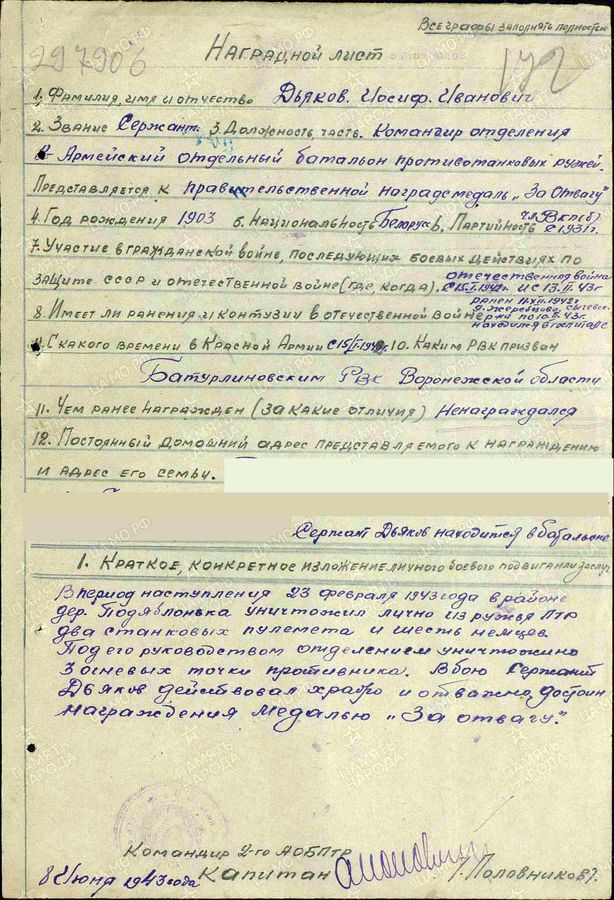 Все графы заполнять полностью
297906
Наградной лист
1. Фамилия, имя и отчество Дьяков. Иосиф. Иванович
2. Звание Сержант. 3. Должность, часть. Командир отделения
Армейский отдельный батальон противотанковых ружей.
Представляется к правительственной награде медаль „За Отвагу"
4. Год рождения 1903 5. Национальность Белорус 6. Партийность чл. Вкп(б) с 1931г.
7. Участие в гражданской войне, последующих боевых действиях по
защите СССР и отечественной войне (где, когда). отечественная война
с 15.I.1942г. и с 13.II.43г.
8. Имеет ли ранения и контузии в отечественной войне ранен 11.XII.1942г.
по 10.II.43г.
находился в госпитале
9. С какого времени в Красной Армии с 15/I.1942 10. Каким РВК призван
Батурлиновским РВК Воронежской области
11. Чем ранее награжден (за какие отличия) Ненаграждался
12. Постоянный домашний адрес представляемого к награждению
и адрес его семьи.
Сержант Дьяков находится в батальоне
1. Краткое, конкретное изложение личного боевого подвига или заслуг
В период наступления 23 февраля 1943 года в районе
дер. Подяблонька уничтожил лично из ружья Птр
два станковых пулемета и шесть немцев
Под его руководством отделением уничтожено
3 огневых точки противника. В бою Сержант
Дьяков действовал храбро и отважно, достоин
награждения медалью „За отвагу."
Командир 2-го АОБПтр
Капитан
Половников
8 Июня 1943 года
ЦАМО.РФ
ПАМЯТЬ НАРОДА